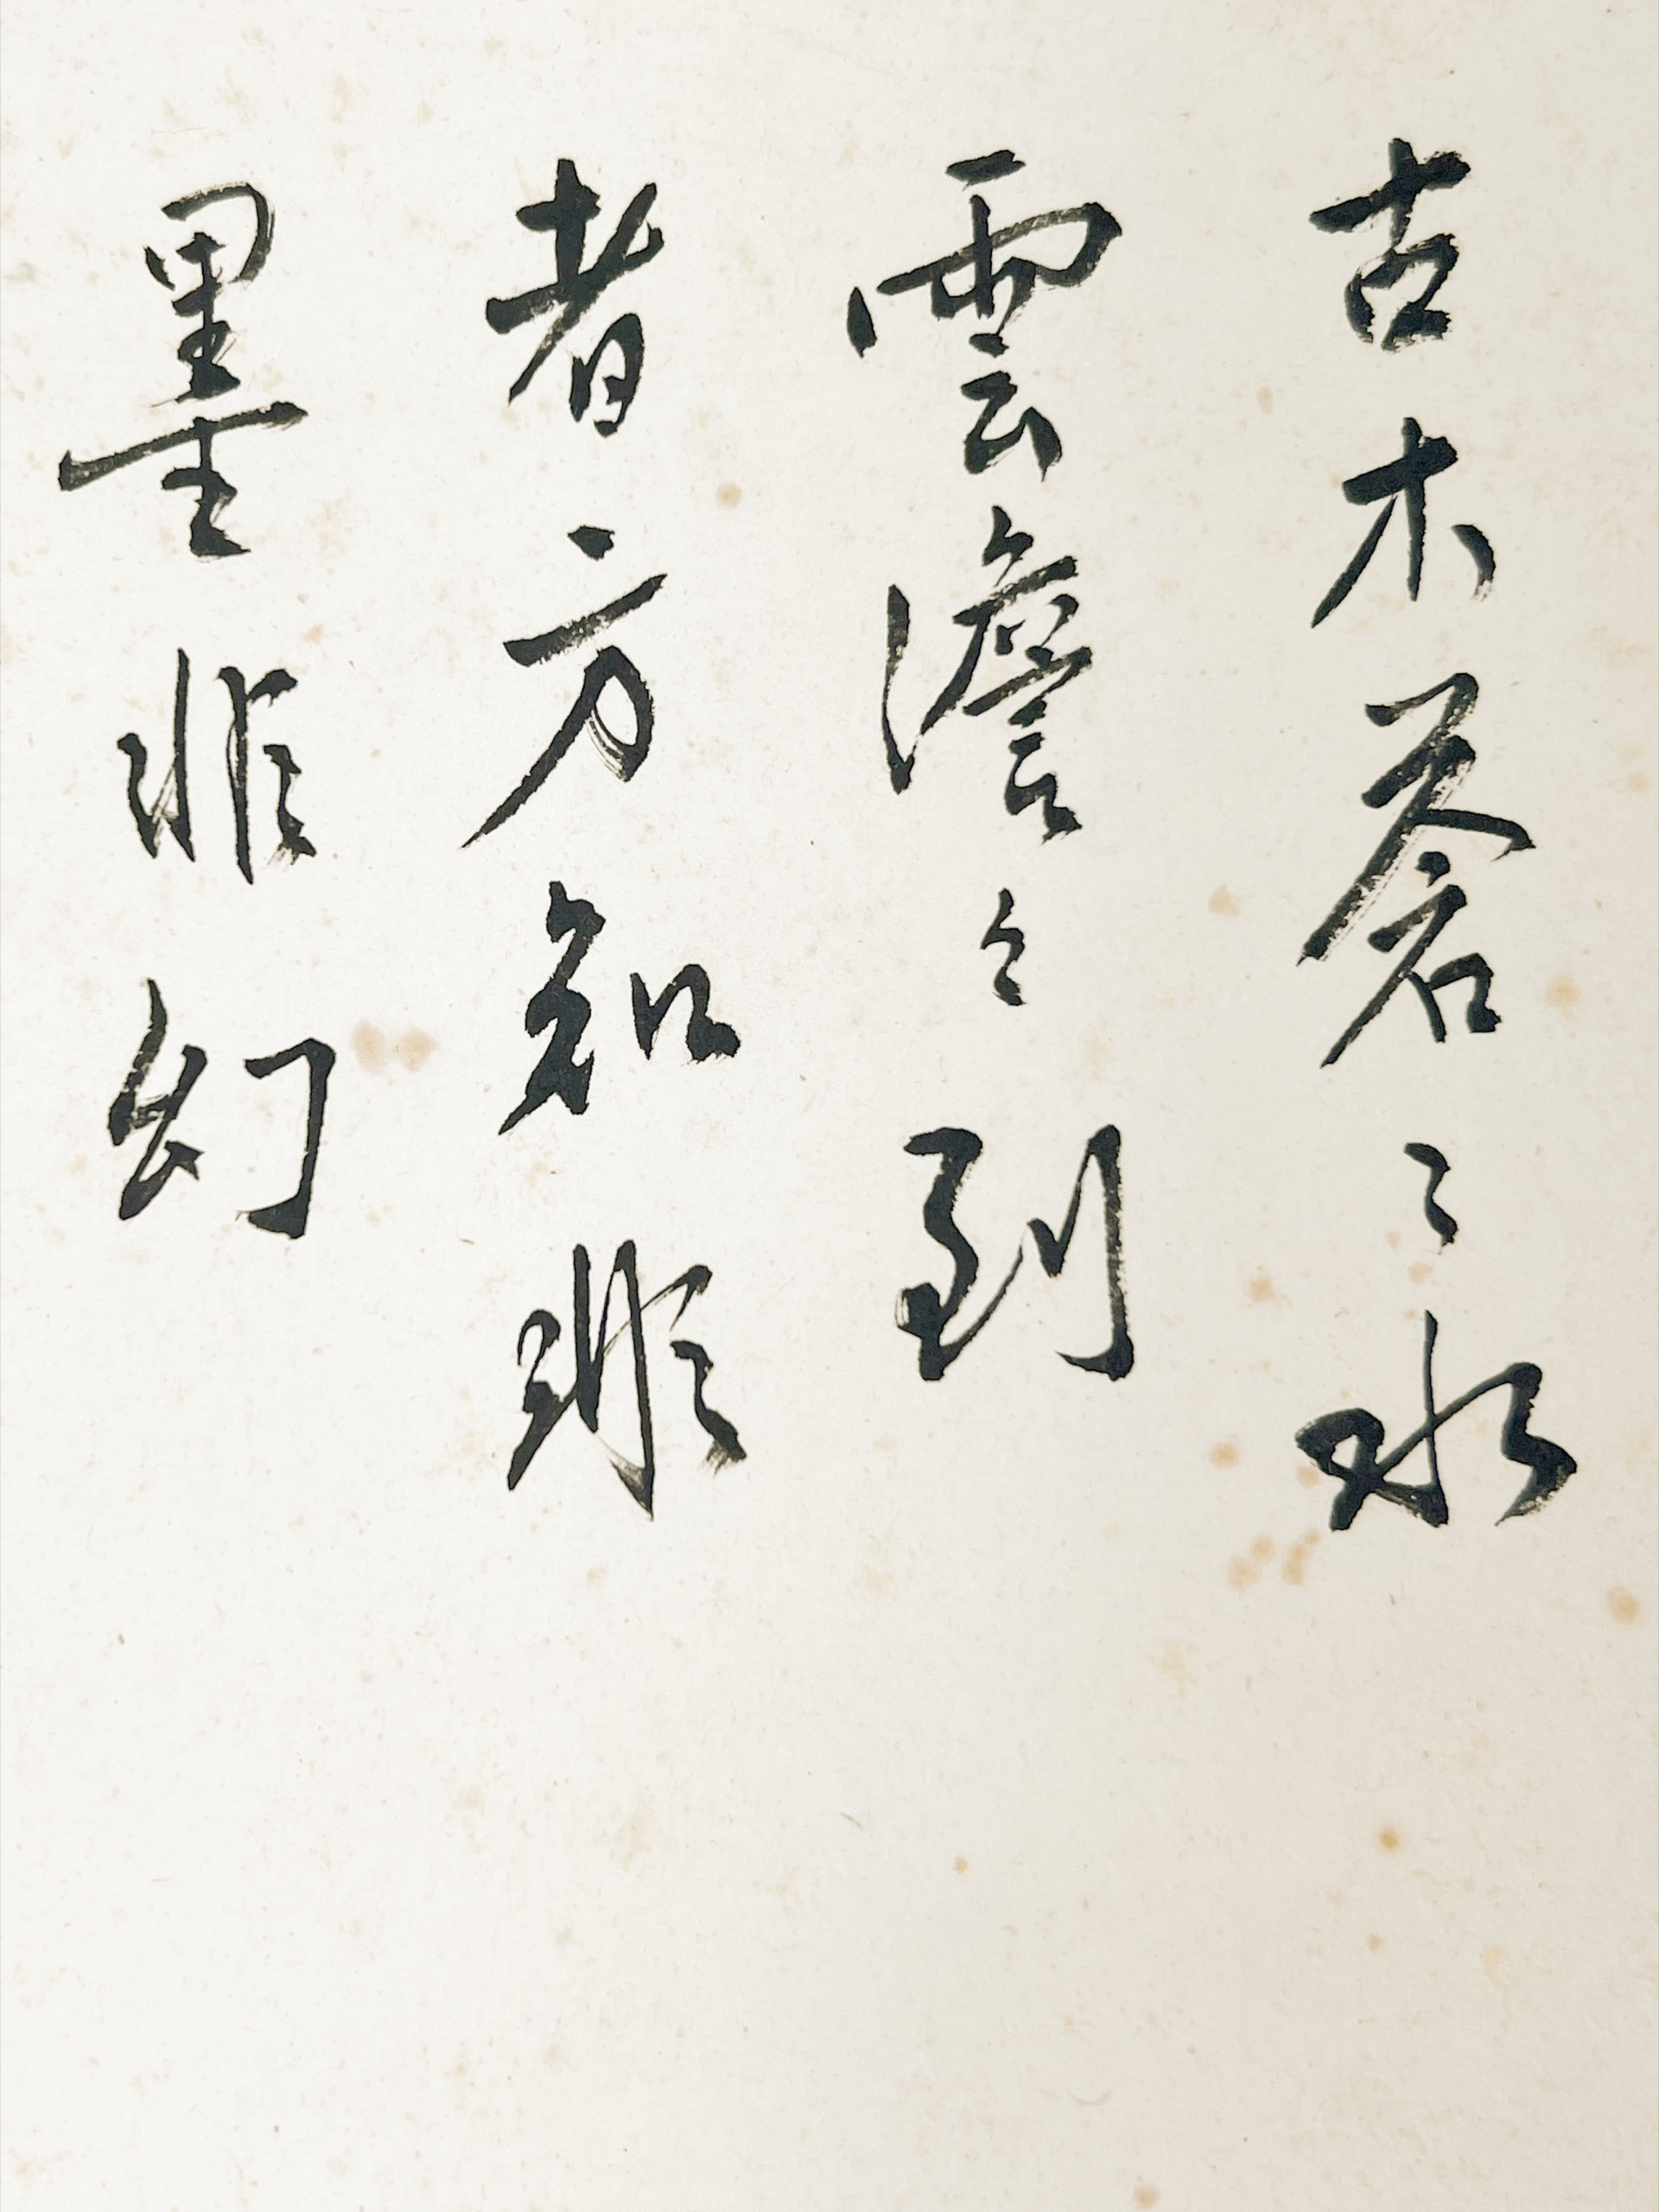 古木蒼〻水
雲澹〻到
者方知非
墨非幻